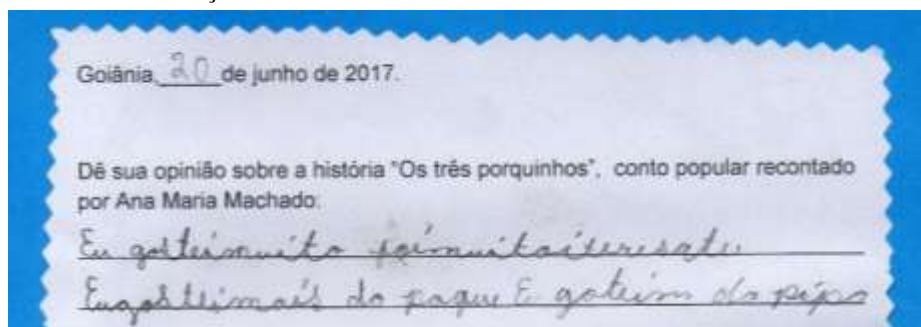 Goiânia, 20 de junho de 2017.
Dê sua opinião sobre a história "Os três porquinhos", conto popular recontado
por Ana Maria Machado:
Eu gosteimuito foimuitoiteresate.
Eugosteimais do